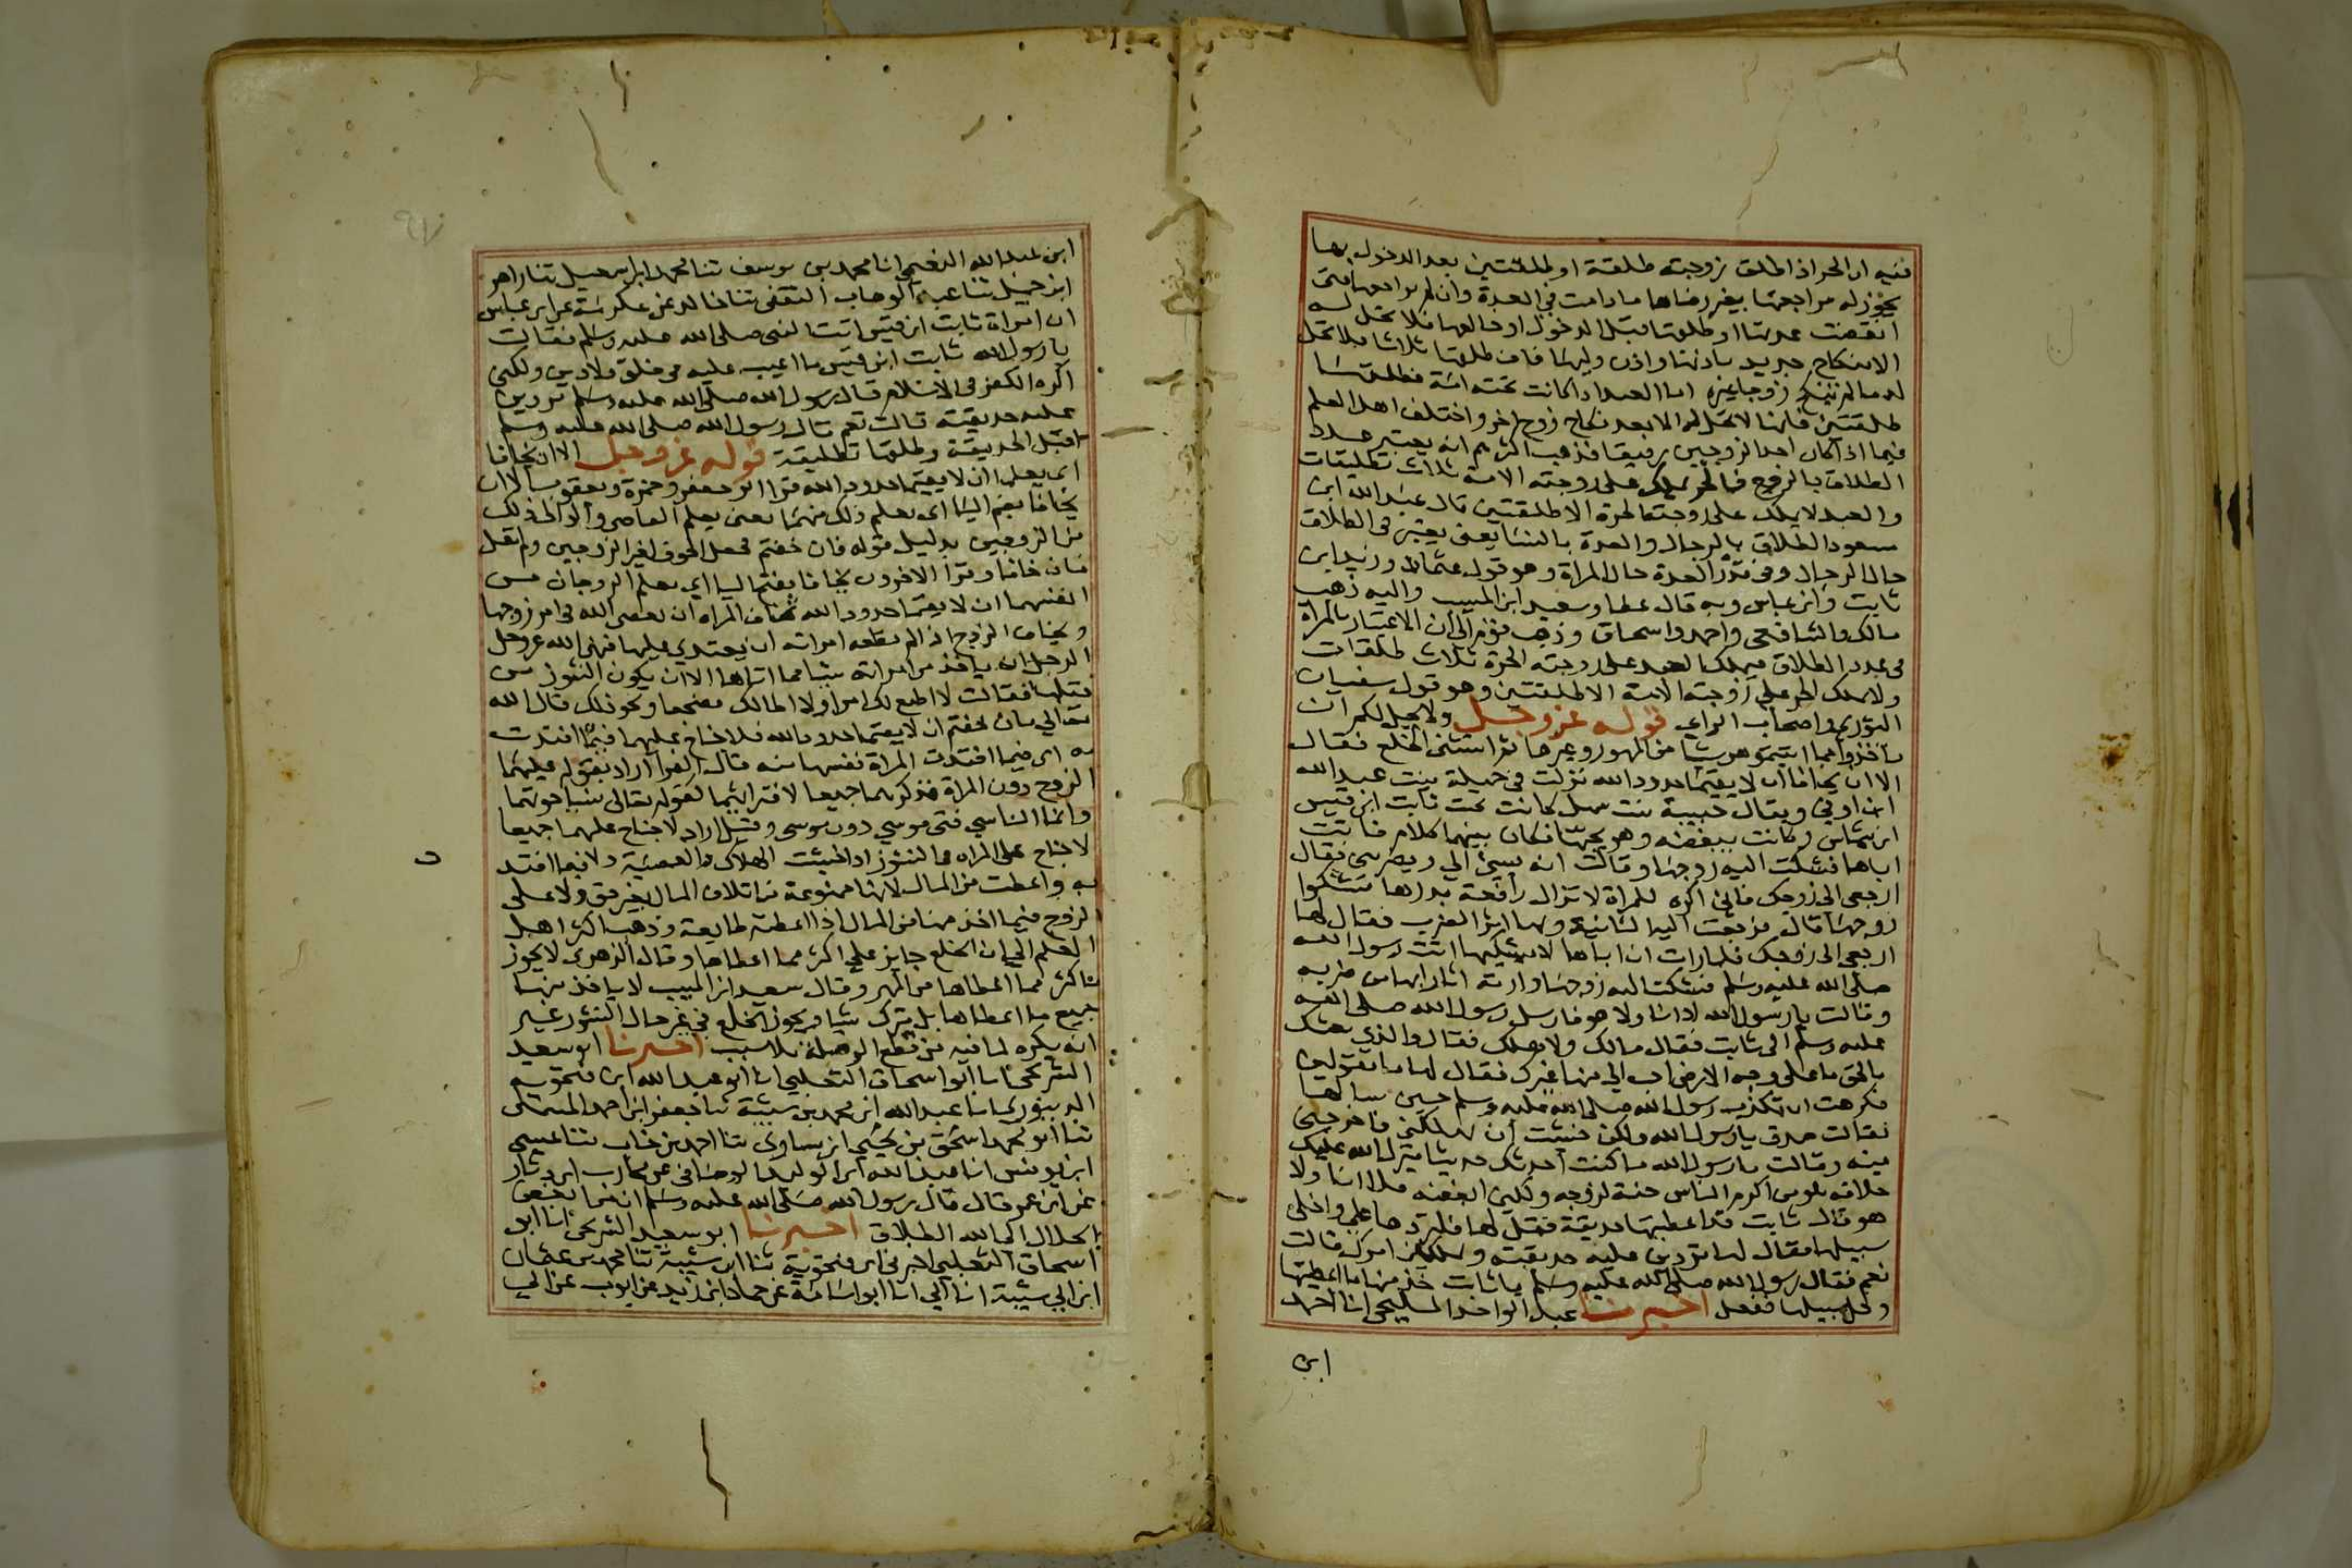 فيه ان الحر اذا طلق زوجته طلقة او طلقتين بعد الدخول بها
يجوز له مراجعتها بغير رضاها ما دامت في العدة وان لم يراجعها حتى
انقضت عدتها او طلقها قبل الدخول او خالعها فلا تحل له
الا بنكاح جديد باذنها واذن وليها فان طلقها ثلاثا فلا تحل
له ما لم تنكح زوجا غيره اما العبد اذا كانت تحته امة فطلقها
طلقتين فانها لا تحل له الا بعد نكاح زوج اخر واختلف اهل العلم
فيما اذا كان احد الزوجين رقيقا فذهب اكثرهم انه يعتبر عدد
الطلاق بالزوج فالحر يملك على زوجته الامة ثلاث تطليقات
والعبد لا يملك على زوجته الحرة الا طلقتين قال عبد الله ابن
مسعود الطلاق بالرجال والعدة بالنسا يعني يعتبر في الطلاق
حال الرجال وفي قدر العدة حال المراة وهو قول عثمان وزيد ابن
ثابت وابن عباس وبه قال عطا وسعيد ابن المسيب واليه ذهب
مالك والشافعي واحمد واسحاق وذهب قوم الى ان الاعتبار بالمراة
في عدد الطلاق فيملك العبد على زوجته الحرة ثلاث طلقات
ولا يملك الحر على زوجته الامة الا طلقتين وهو قول سفيان
الثوري واصحاب الراي قوله عز وجل ولا يحل لكم ان
تاخذوا مما اتيتموهن شيا من المهور وغيرها ثم استثنى الخلع فقال
الا ان يخافا ان لا يقيما حدود الله نزلت في جميلة بنت عبد الله
ابن اوفي ويقال حبيبة بنت سهل كانت تحت ثابت ابن قيس
ابن شماس وكانت تبغضه وهو يحبها فكان بينهما كلام فاتت
اباها فشكت اليه زوجها وقالت انه يسيء الي ويضربني فقال
ارجعي الى زوجك فاني اكره للمراة لا تزال رافعة يديها تشكوا
زوجها قال فرجعت اليه الثانية وبها اثر الضرب فقال لها
ارجعي الى زوجك فلما رات ان اباها لا يشكيها اتت رسول الله
صلى الله عليه وسلم فشكت اليه زوجها وارته اثارا بها من ضربه
وقالت يا رسول الله لا انا ولا هو فارسل رسول الله صلى الله
عليه وسلم الى ثابت فقال مالك ولاهلك فقال والذي بعثك
بالحق ما على وجه الارض احب الي منها غيرك فقال لها ما تقولين
فكرهت ان تكذب رسول الله صلى الله عليه وسلم حين سالها
فقالت صدق يا رسول الله ولكن خشيت ان يهلكني فاخرجني
منه وقالت يا رسول الله ما كنت احدثك حديثا ينزل الله عليك
خلافه هو من اكرم الناس محبة لزوجه ولكني ابغضه فلا انا ولا
هو قال ثابت قد اعطيتها حديقة فقل لها فلتردها علي واخلي
سبيلها فقال لها تردين عليه حديقته وتملكين امرك قالت
نعم فقال رسول الله صلى الله عليه وسلم يا ثابت خذ منها ما اعطيتها
وخل سبيلها ففعل اخبرنا عبد الواحد المليحي انا احمد
ابن
ابن عبد الله النعيمي انا محمد بن يوسف ثنا محمد ابن اسمعيل ثنا زاهر
ابن جميل ثنا عبد الوهاب الثقفي ثنا خالد عن عكرمة عن ابن عباس
ان امراة ثابت ابن قيس اتت النبي صلى الله عليه وسلم فقالت
يا رسول الله ثابت ابن قيس ما اعيب عليه في خلق ولا دين ولكني
اكره الكفر في الاسلام قال رسول الله صلى الله عليه وسلم تردين
عليه حديقته قالت نعم قال رسول الله صلى الله عليه وسلم
اقبل الحديقة وطلقها تطليقة قوله عز وجل الا ان يخافا
اي يعلما ان لا يقيما حدود الله قرا ابو جعفر وحمزة ويعقوب الا ان
يخافا بضم اليا اي يعلم ذلك منهما يعني يعلم القاضي والوالي ذلك
من الزوجين بدليل قوله فان خفتم فجعل الخوف لغير الزوجين ولم يقل
فان خافا وقرا الاخرون يخافا بفتح اليا اي يعلم الزوجان من
انفسهما ان لا يقيما حدود الله تخاف المراه ان تعصي الله في امر زوجها
ويخاف الزوج اذا لم تطعه امراته ان يعتدي عليها فنهى الله عز وجل
الرجل ان ياخذ من امراته شيا مما اتاها الا ان يكون النشوز من
قبلها فقالت لا اطيع لك امرا ولا اطا لك مضجعا ونحو ذلك قال الله
تعالى فان خفتم ان لا يقيما حدود الله فلا جناح عليهما فيما افتدت
به اي فيما افتدت المراة نفسها منه قال الفرا اراد بقوله عليهما
الزوج دون المراة فذكرهما جميعا لاقترانهما كقوله تعالى نسيا حوتهما
وانما الناسي فتى موسى دون موسى وقيل اراد لا جناح عليهما جميعا
لا جناح على المراه في النشوز اذا خشيت الهلاك والمعصية ولا فيما افتدت
به واعطت من المال لانها ممنوعة من اتلاف المال بغير حق ولا على
الزوج فيما اخذ منها من المال اذا اعطته طايعة وذهب اكثر اهل
العلم الى ان الخلع جايز على اكثر مما اعطاها وقال الزهري لا يجوز
باكثر مما اعطاها من المهر وقال سعيد ابن المسيب لا ياخذ منها
جميع ما اعطاها بل يترك شيا ويجوز الخلع في غير حال النشوز غير
انه يكره لما فيه من قطع الوصلة بلا سبب اخبرنا ابو سعيد
الشريحي انا ابو اسحاق الثعلبي انا ابو عبد الله ابن فنجويه
الدينوري انا عبد الله ابن محمد بن شيبة ثنا جعفر ابن احمد المستملي
ثنا ابو محمد اسحق بن يحيى ثنا احمد بن خباب ثنا عيسى
ابن يونس انا عبيد الله ابن الوليد الوصافي عن محارب ابن دثار
عن ابن عمر قال قال رسول الله صلى الله عليه وسلم ان من ابغض
الحلال الى الله الطلاق اخبرنا ابو سعيد الشريحي انا ابو
اسحاق الثعلبي اخبرني ابن فنجوية ثنا ابن شيبة ثنا محمد بن عثمان
ابن ابي شيبة انا ابي انا ابو اسامة عن حماد ابن زيد عن ايوب عن ابي